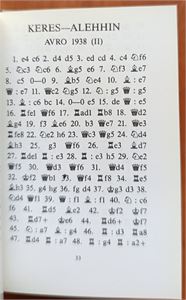 KERES—ALEHHIN
AVRO 1938 (II)
1. e4 c6 2. d4 d5 3. ed cd 4. c4 ♘f6
5. ♘c3 ♘c6 6. ♗g5 e6 7. ♘f3 ♗e7
8. c5 0—0 9. ♗b5 ♘e4 10. ♗ : e7
♕ : e7 11. ♕c2 ♘g5 12. ♘ : g5 ♕ : g5
13. ♗ : c6 bc 14. 0—0 e5 15. de ♕ : e5
16. ♖fe1 ♕f6 17. ♖ad1 ♖b8 18. ♕d2
♗g4 19. f3 ♗e6 20. b3 ♕e7 21. ♕e3
♖fe8 22. ♘e2 h6 23. ♕c3 ♕g5 24. ♘d4
♗h3 25. g3 ♕f6 26. ♖e3 ♗d7
27. ♖de1 ♖ : e3 28. ♖ : e3 h5 29. ♘e2
♕f5 30. ♕d3 ♕f6 31. ♕d4 ♕f5
32. ♔f2 ♕b1 ♕f4 ♖f8 34. ♖e5
♗h3 35. g4 hg 36. fg d4 37. ♔g3 d3 38.
♘d4 ♕f1 39. ♕ : f1 ♗ : f1 40. ♘ : c6
f6 41. ♖d5 ♗e2 42. f2 ♔f7
43. ♖d7+ ♔e6 44. ♖d6+ ♔f7
45. ♘ : a7 ♗ : g4 46. ♖ : d3 ♖a8
47. ♖d4 ♖ : a7 48. ♖ : g4 : a2+